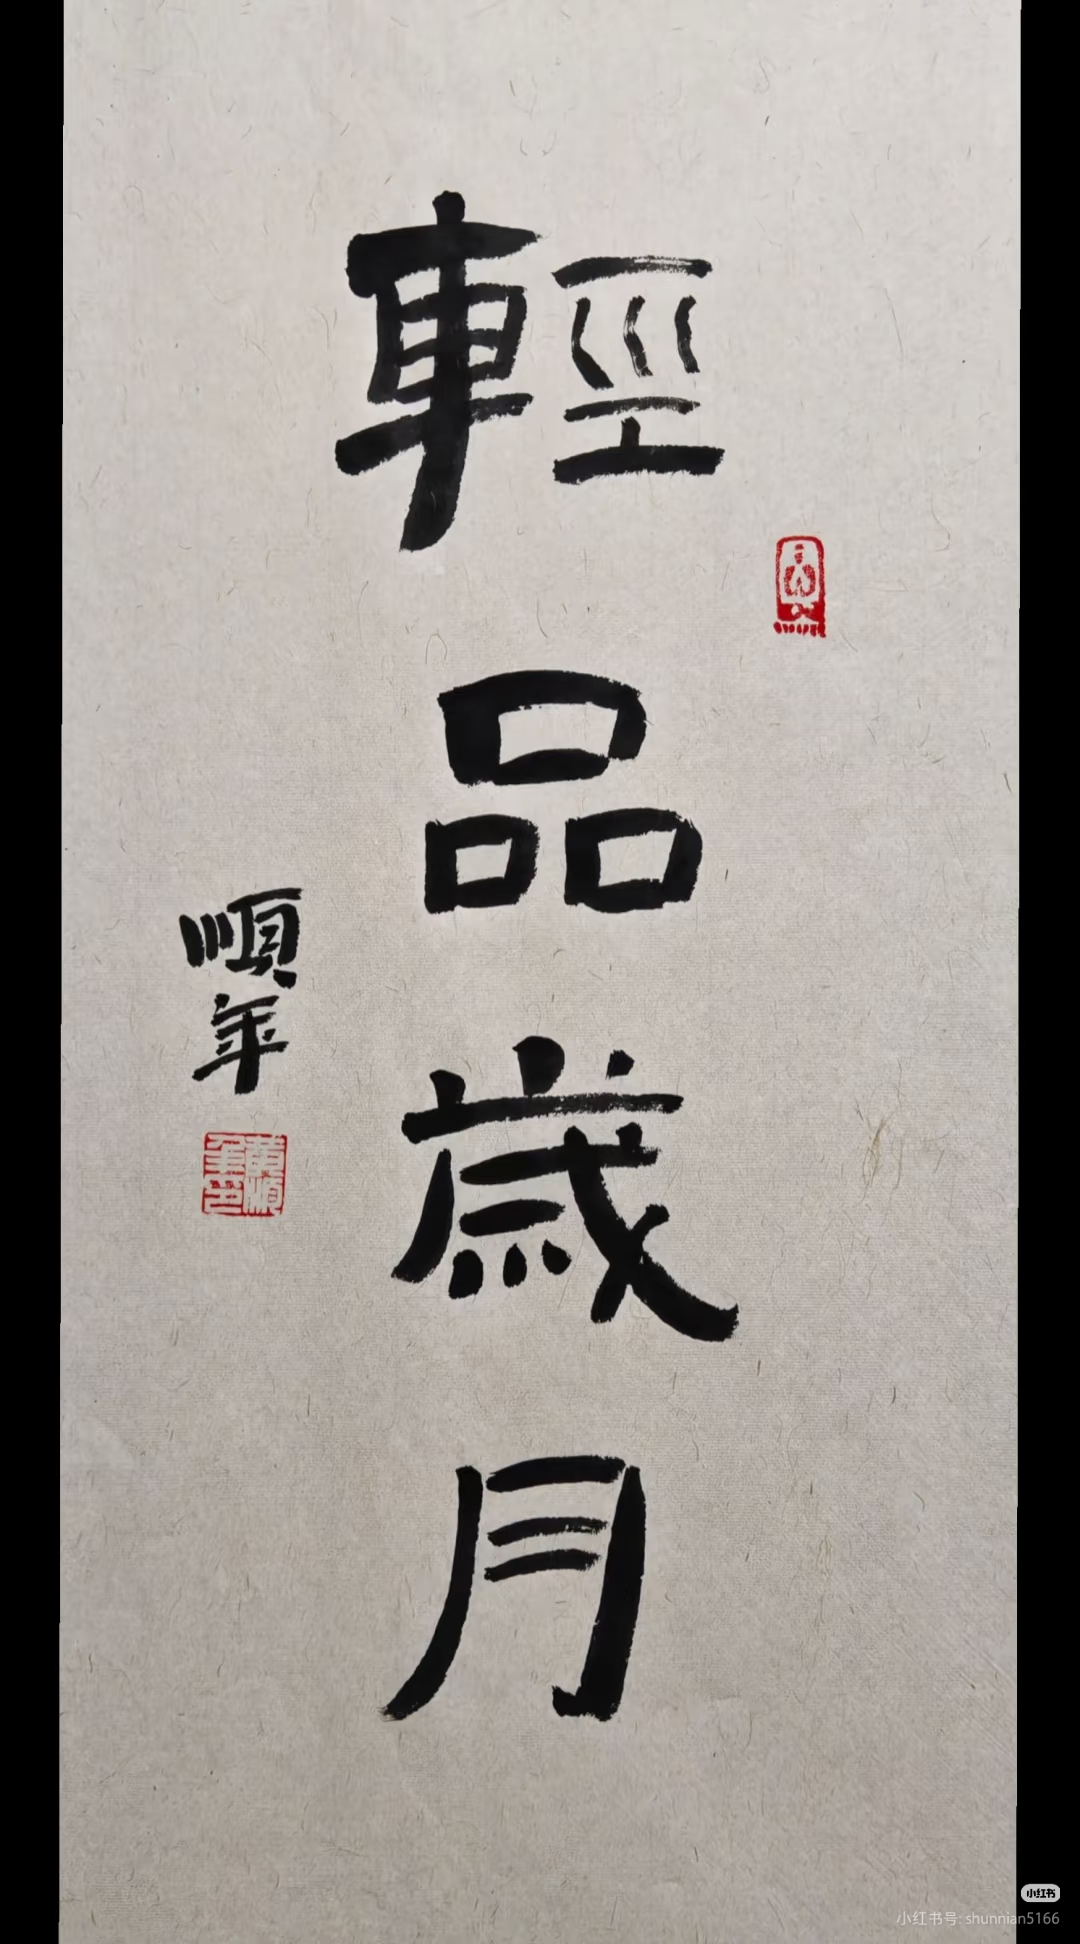 輕品歲月
順年
黄順年印
小红书
小红书号: shunnian5166